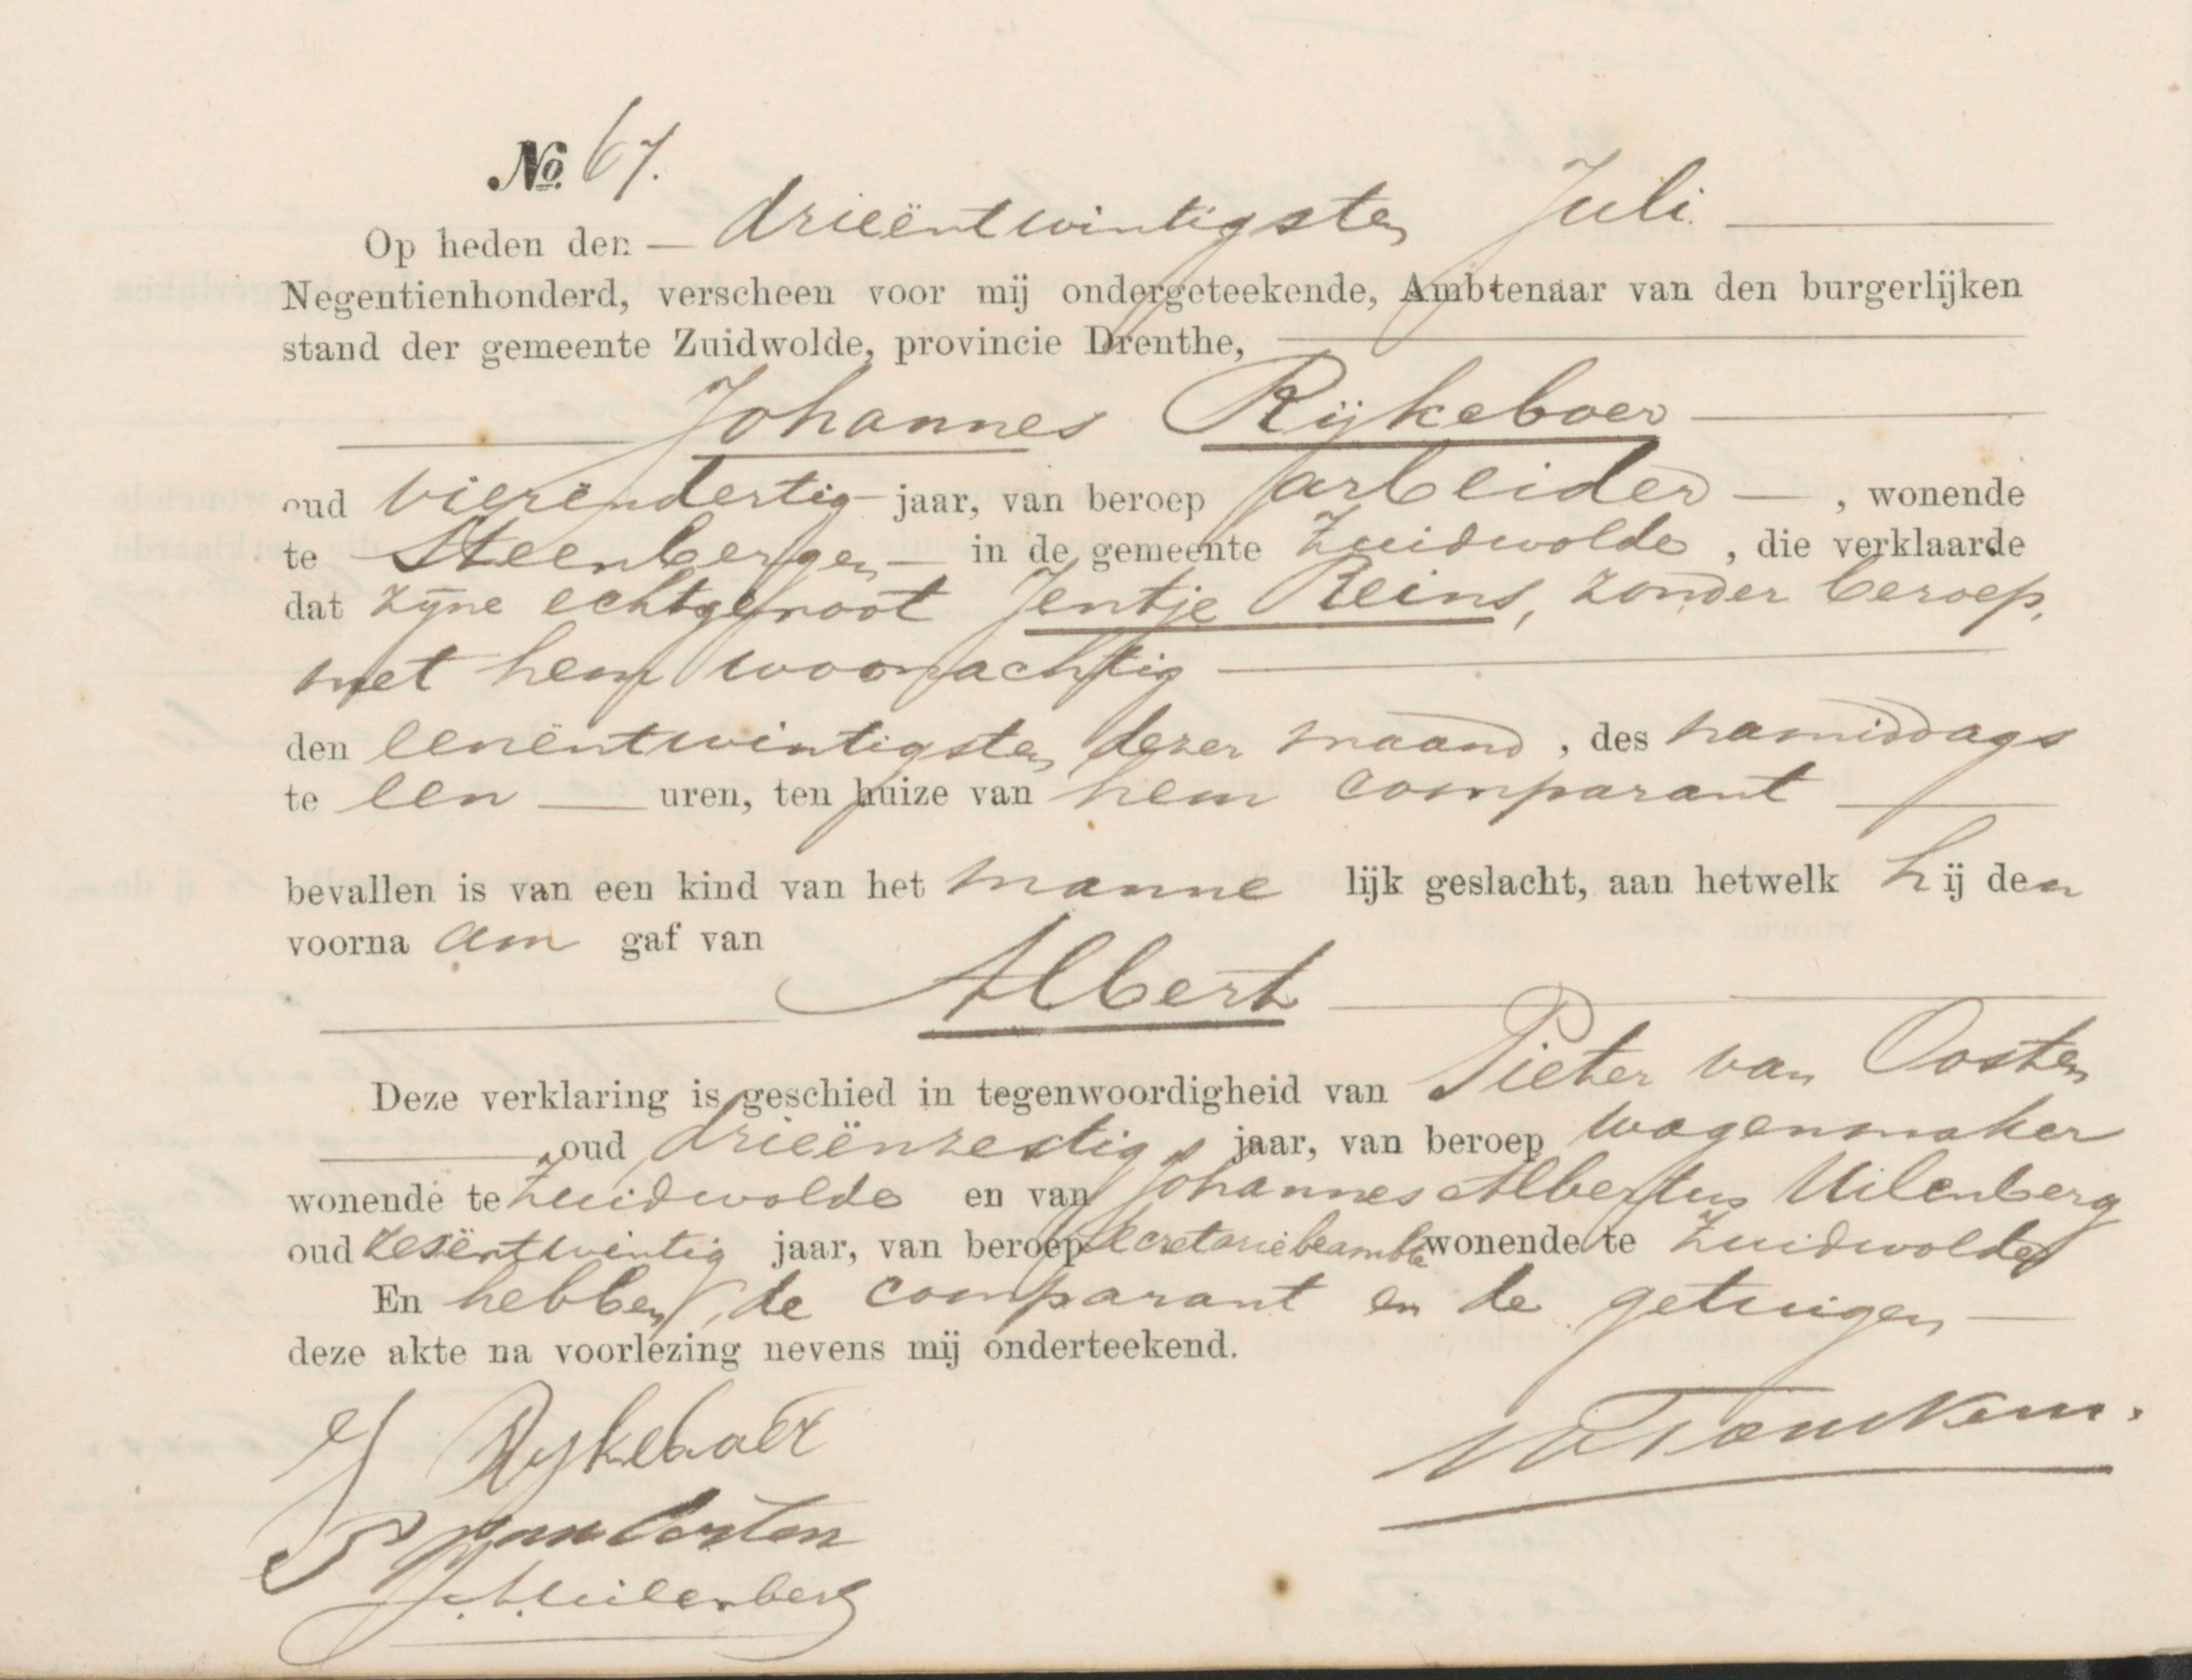 No. 67.
Op heden den drieëntwintigsten Juli
Negentienhonderd, verscheen voor mij ondergeteekende, Ambtenaar van den burgerlijken
stand der gemeente Zuidwolde, provincie Drenthe,
Johannes Rijkeboer
oud vierendertig jaar, van beroep arbeider, wonende
te Steenbergen in de gemeente Zuidwolde, die verklaarde
dat zijne echtgenoot Jentje Reins, zonder beroep,
met hem woonachtig
den eenentwintigsten dezer maand, des namiddags
te een uren, ten huize van hem comparant
bevallen is van een kind van het mannelijk geslacht, aan hetwelk hij den
voornaam gaf van
Albert
Deze verklaring is geschied in tegenwoordigheid van Pieter van Oosten
oud drieënzestig jaar, van beroep wagenmaker
wonende te Zuidwolde en van Johannes Albertus Uilenberg
oud zesëntwintig jaar, van beroep secretariebeambte wonende te Zuidwolde
En hebben de comparant en de getuigen
deze akte na voorlezing nevens mij onderteekend.
J Rykeboer
P van Oosten
J. A. Uilenberg